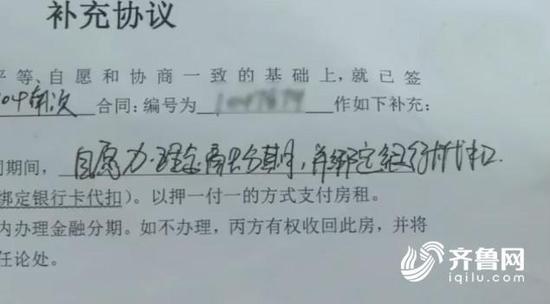 补充协议
平等、自愿和协商一致的基础上,就已签
合同:编号为 作如下补充:
期间, 自愿办理金 分期,并绑定银行代扣
绑定银行卡代扣)。以押一付一的方式支付房租。
内办理金融分期。如不办理,丙方有权收回此房,并将
任论处。
齐鲁网
iqilu.com